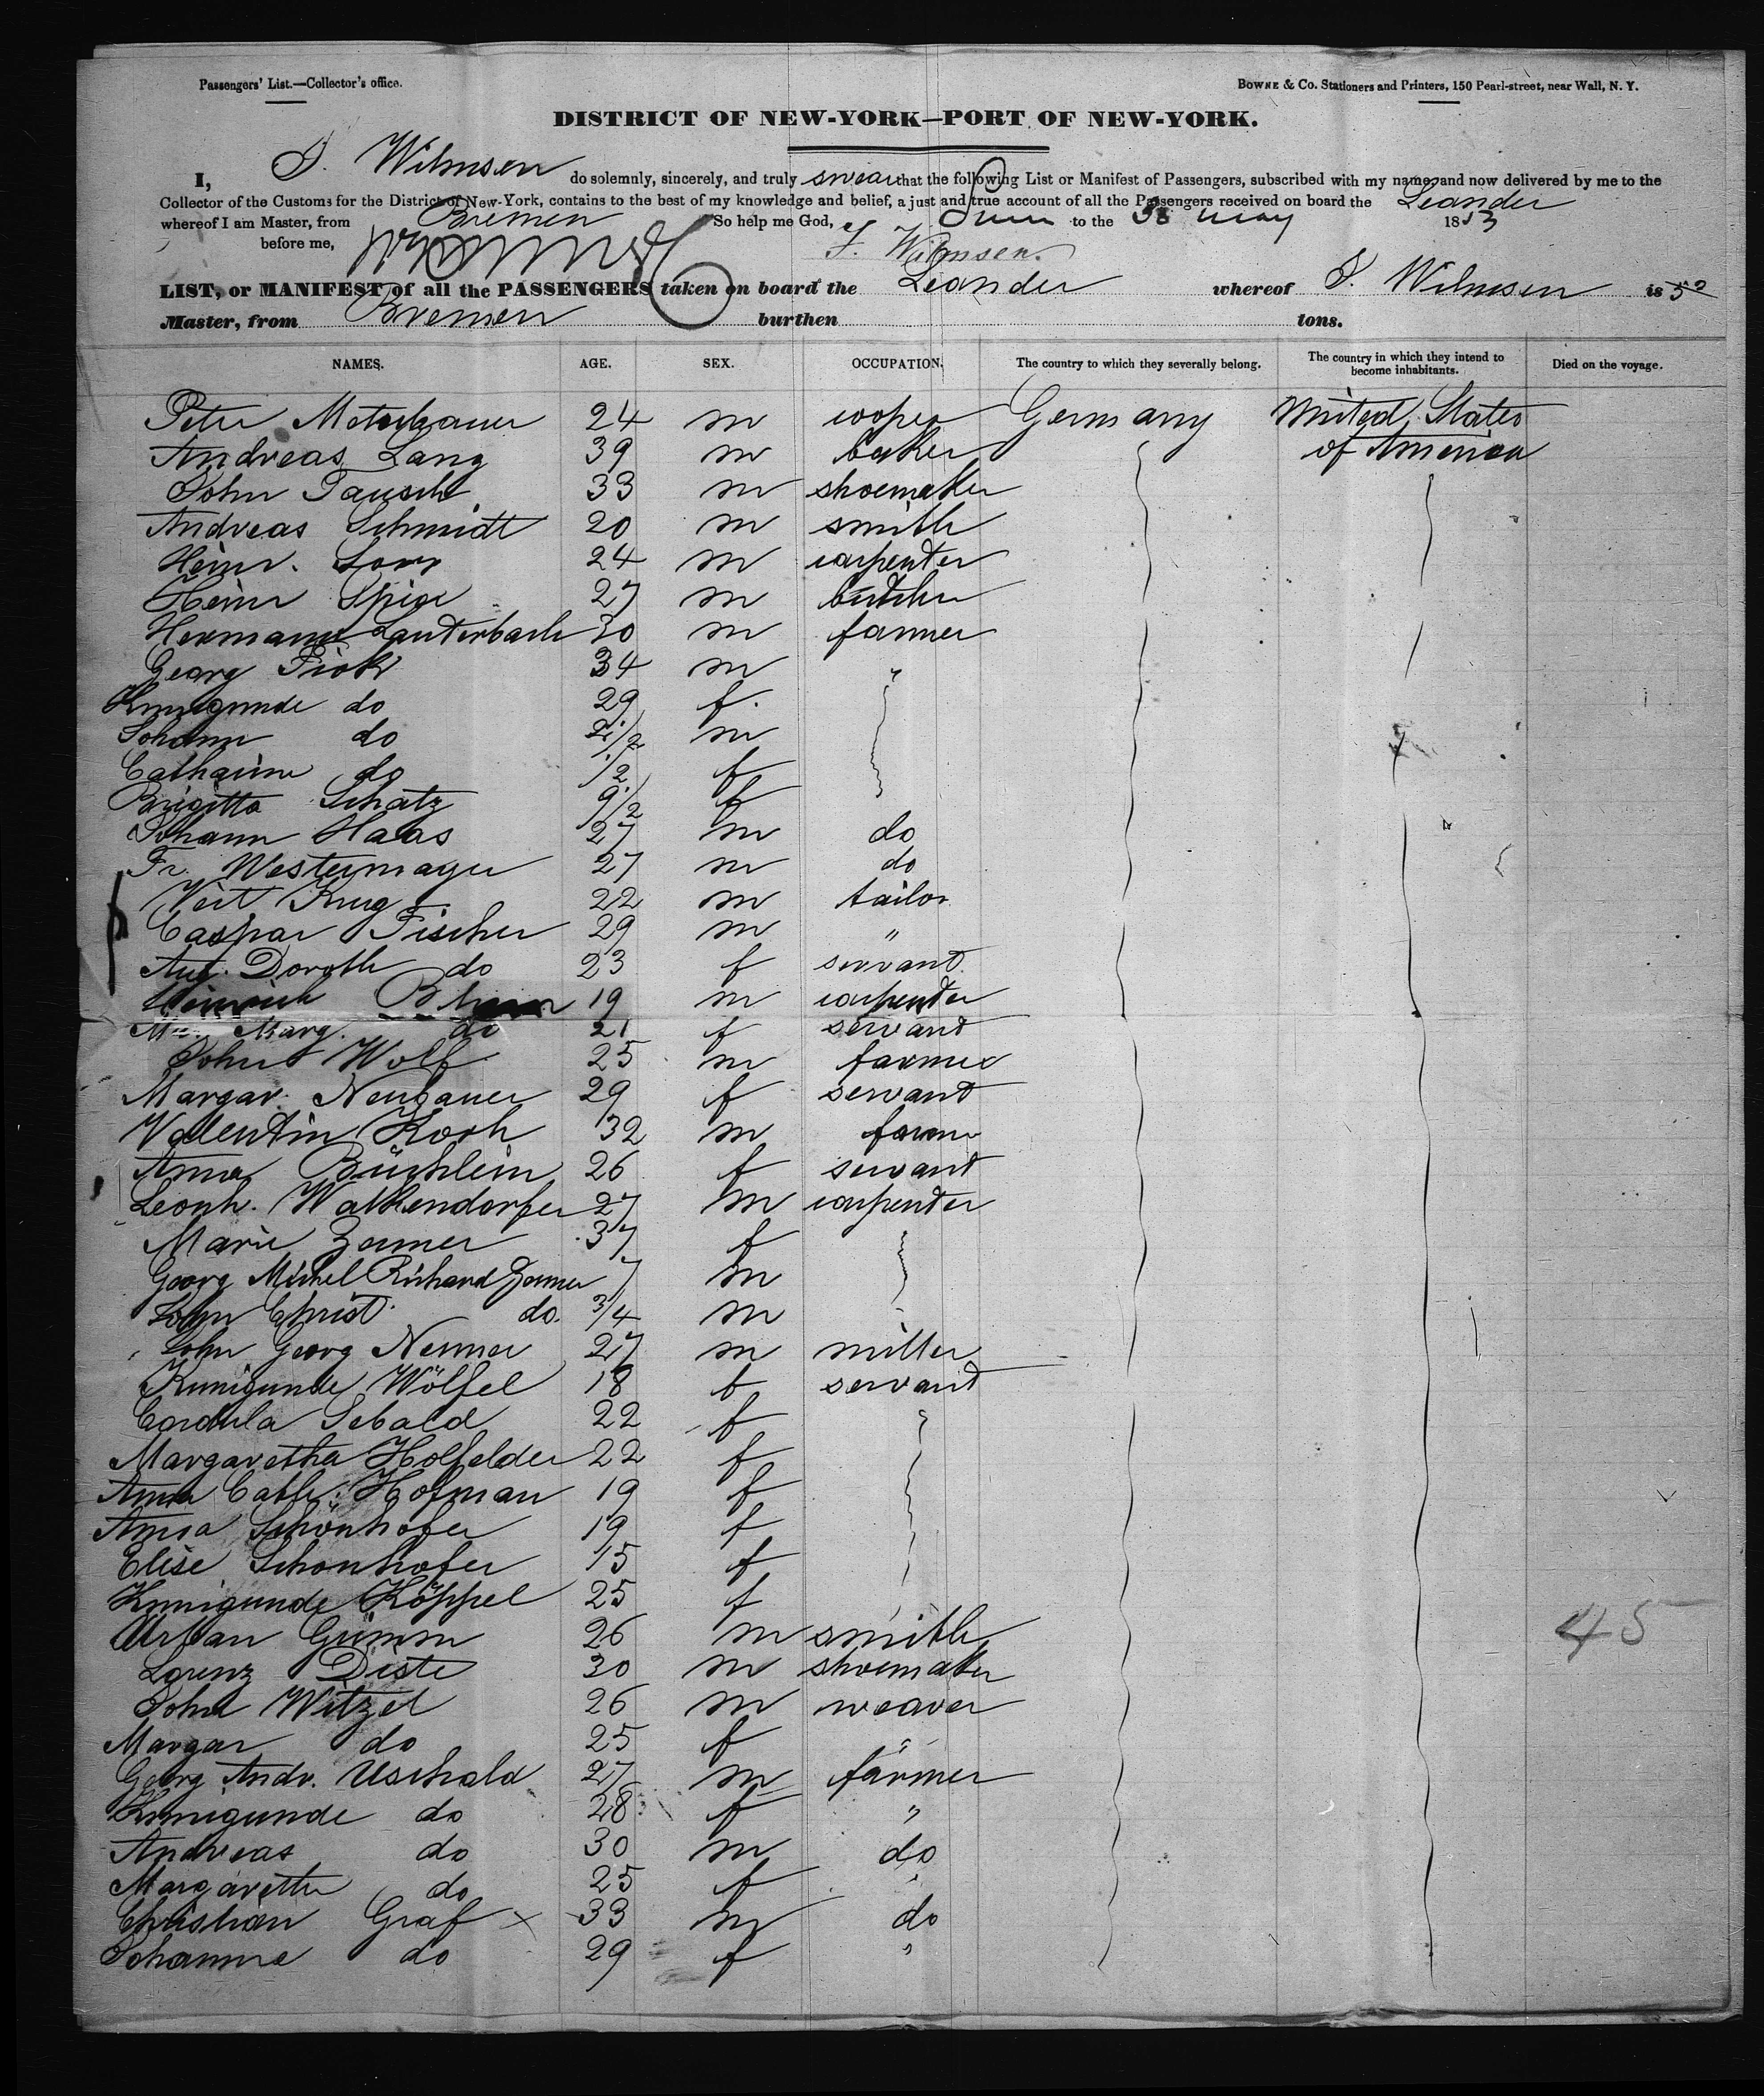 Passengers' List.—Collector's office.
BOWNE & Co. Stationers and Printers, 150 Pearl-street, near Wall, N. Y.
DISTRICT OF NEW-YORK—PORT OF NEW-YORK.
I, J. Wilmsen do solemnly, sincerely, and truly swear that the following List or Manifest of Passengers, subscribed with my name, and now delivered by me to the
Collector of the Customs for the District of New-York, contains to the best of my knowledge and belief, a just and true account of all the Passengers received on board the Leander
whereof I am Master, from Bremen So help me God, Sworn to the 31 may 1853
before me, J. Wilmsen.
LIST, or MANIFEST of all the PASSENGERS taken on board the Leander whereof J. Wilmsen is
Master, from Bremen burthen tons.
NAMES. AGE. SEX. OCCUPATION. The country to which they severally belong. The country in which they intend to become inhabitants. Died on the voyage.
Peter 24 m cooper Germany United States
Andreas Lang 39 m baker of America
John Pausch 33 m shoemaker
Andreas Schmidt 20 m smith
Heinr. 24 m carpenter
Heinr 27 m butcher
Hermann Lauterbach 30 m farmer
Georg 34 m "
Kunigunde do 29 f.
Johann do 2 1/2 m
Catharine do 1/2 f
Brigitta Schatz 9 1/2 f
Johann Haas 27 m do
Fr. Westermayer 27 m do
Veit Krug 22 m tailor
Caspar Fischer 29 m "
Doroth do 23 f servant
Heinrich 19 m carpenter
Marg. do 21 f servant
John Wolf 25 m farmer
Margar. Neubauer 29 f servant
Valentin Koch 32 m farmer
Anna Büchlein 26 f servant
Leonh. Walkendorfer 27 m carpenter
Marie Zormer 37 f
Georg Michel Richard Zormer 7 m
John Christ. do. 3/4 m
John Georg Nenner 27 m miller
Kunigunde Wölfel 18 f servant
Cordula Sebald 22 f
Margaretha Holfelder 22 f
Anna Cath. Hofman 19 f
Anna Schönhofer 19 f
Elise Schonhofer 15 f
Kunigunde Köppel 25 f
Urban Grimm 26 m smith
45
Lorenz 30 m shoemaker
John Witzel 26 m weaver
Margar do 25 f "
Georg Andr. Uschald 27 m farmer
Kunigunde do 28 f "
Andreas do 30 m do
Margarethe do 25 f "
Christian Graf x 33 m do
Johanne do 29 f "